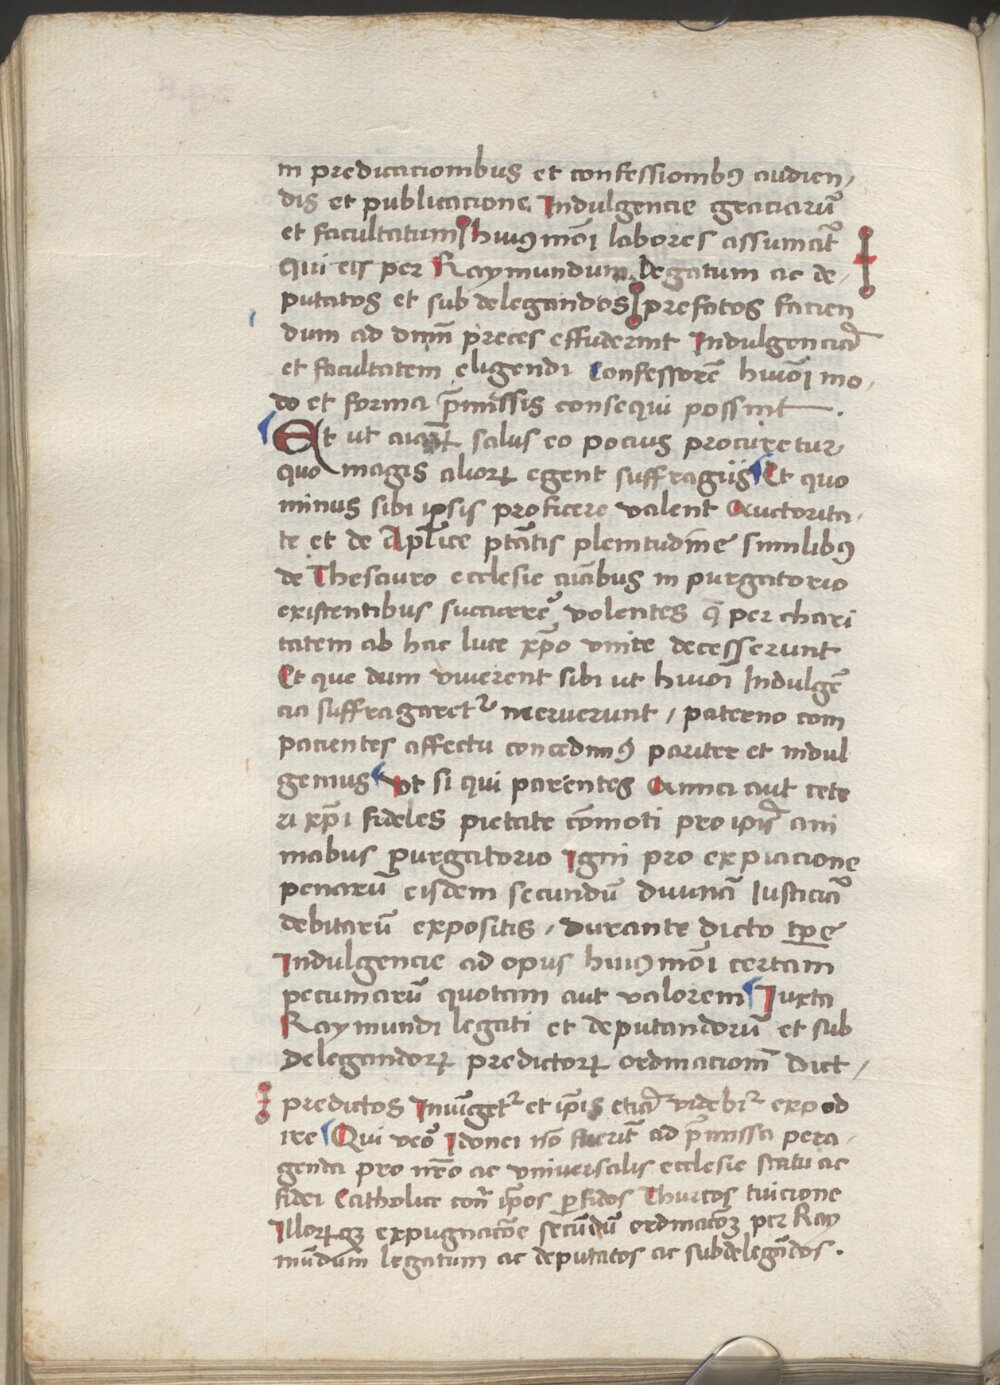 in predicacionibus et confessionib9 audien,
dis et publicacione Indulgencie graciarū
et facultatum hui9mōi labores assumāt
qui eis per Raymundum Legatum ac de,
putatos et subdelegandos prefatos facien
dum ad dnm̄ preces effuderint Indulgenciā
et facultatem eligendi Confessorē huiōi mo,
do et forma p̄missis consequi possint .
Et ut aīaꝝ salus eo pocius procuretur
quo magis alioꝝ egent suffragiis Et quo
minus sibi ip̄sis proficere valent Auctorita,
te et de Apl̄ice ptātis plenitudine similib9
de Thesauro ecclesie aīabus in purgatorio
existentibus succurre᷑ volentes q̄ per chari
tatem ab hac luce xp̄o unite decesserunt
Et que dum viverent sibi ut huiōi Indulgē
cia suffragaret᷑ meruerunt, paterno com
pacientes affectu concedim9 pariter et indul
gemus Vt si qui parentes Amici aut cete
ri xp̄i fideles pietate cōmoti pro ip̄is ani
mabus purgatorio Igni pro expiacione
penarū eisdem secundū divinā Iusticiā
debitarū expositis, durante dicto tp̄e
Indulgencie ad opus hui9mōi certam
pecuniarū quotam aut valorem Iuxta
Raymundi legati et deputandorū et sub
Delegandoꝝ predictoꝝ ordinacionē Dict,
predictos Iniūget᷑ et ip̄is etiā videbi᷑ exped
ire Qui veo᷑ Idonei nō fuerīt ad p̄missa pera,
genda pro nr̄o ac universalis ecclesie statu ac
fidei Catholice cont᷑ ip̄os ꝑfidos Thurcos tuicione
Illoꝝqꝫ expugnacōe secūdū ordinacōꝫ per Ray
mūdum legatum ac deputatos ac subdelegādos .